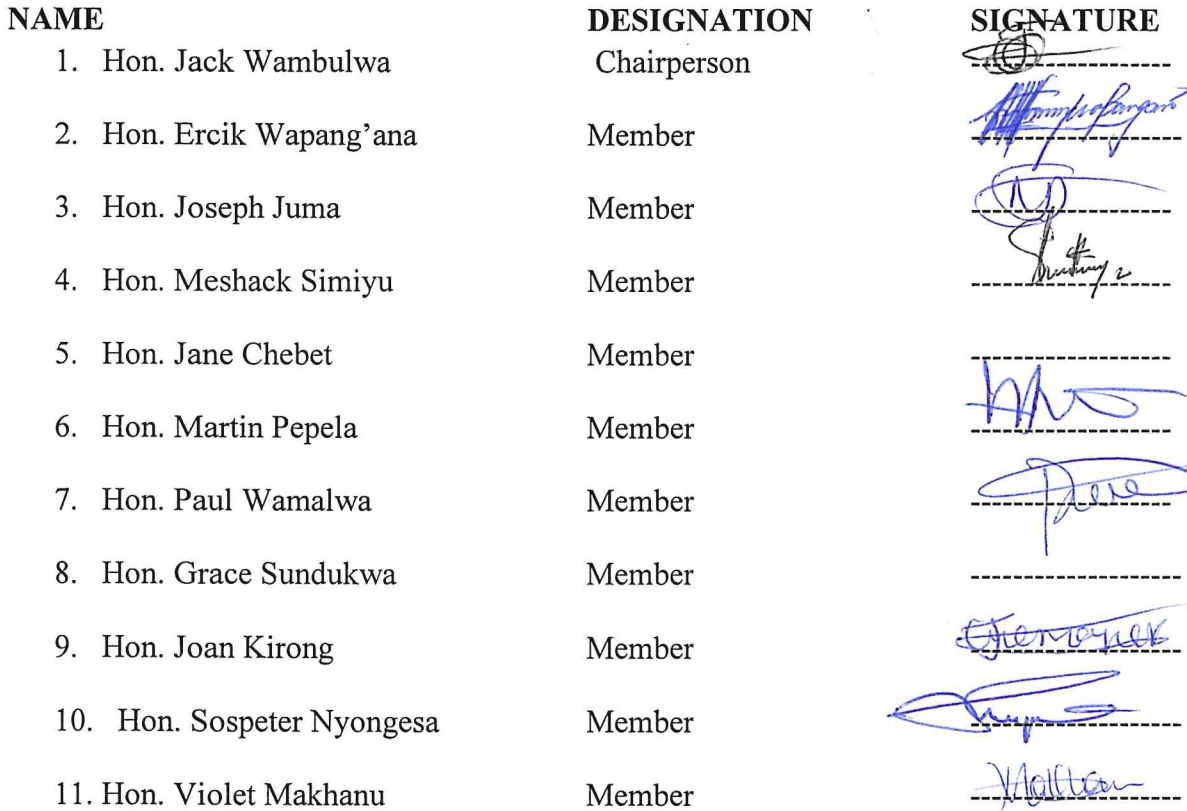 NAME DESIGNATION SIGNATURE
1. Hon. Jack Wambulwa Chairperson
2. Hon. Ercik Wapang'ana Member
3. Hon. Joseph Juma Member
4. Hon. Meshack Simiyu Member
5. Hon. Jane Chebet Member
6. Hon. Martin Pepela Member
7. Hon. Paul Wamalwa Member
8. Hon. Grace Sundukwa Member
9. Hon. Joan Kirong Member
10. Hon. Sospeter Nyongesa Member
11. Hon. Violet Makhanu Member